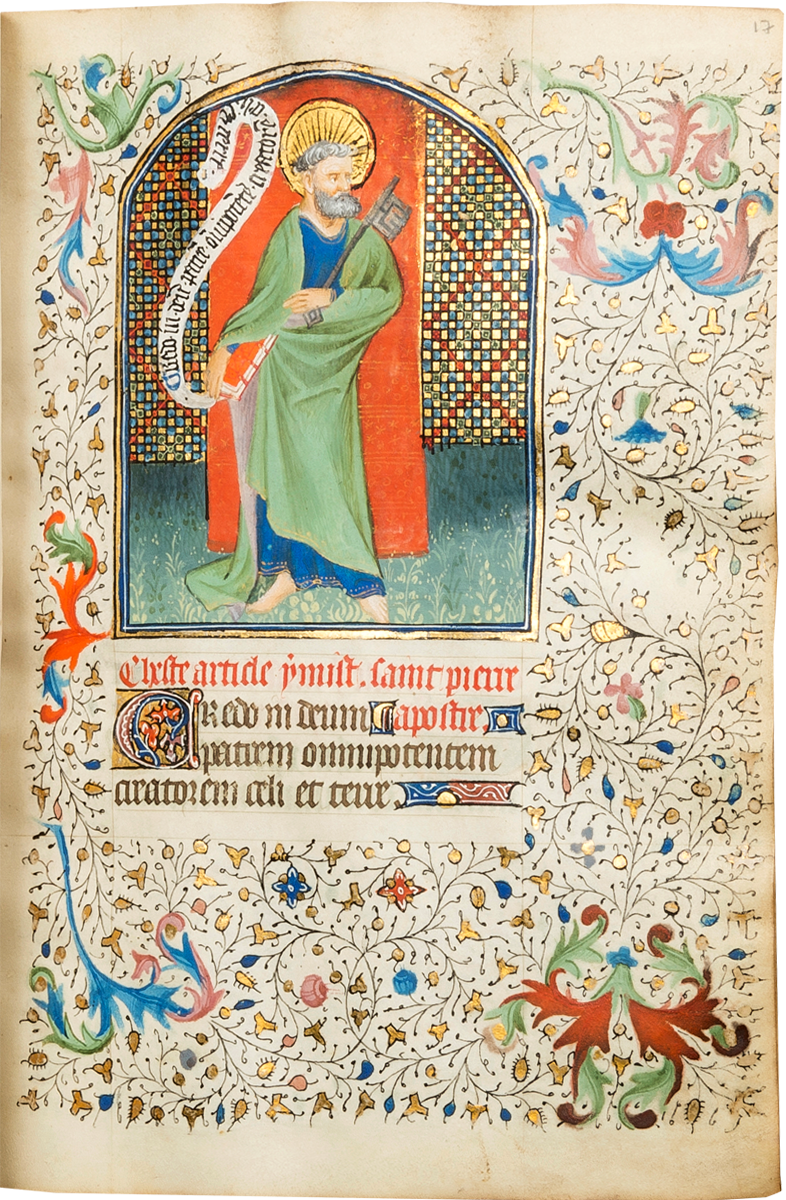 17
Credo in deū patrē omnipotētē creatorē celi
et terre
Cheste article ÿ mist. saint pierre
CRedo in deum apostre
patrem omnipotentem
creatorem celi et terre